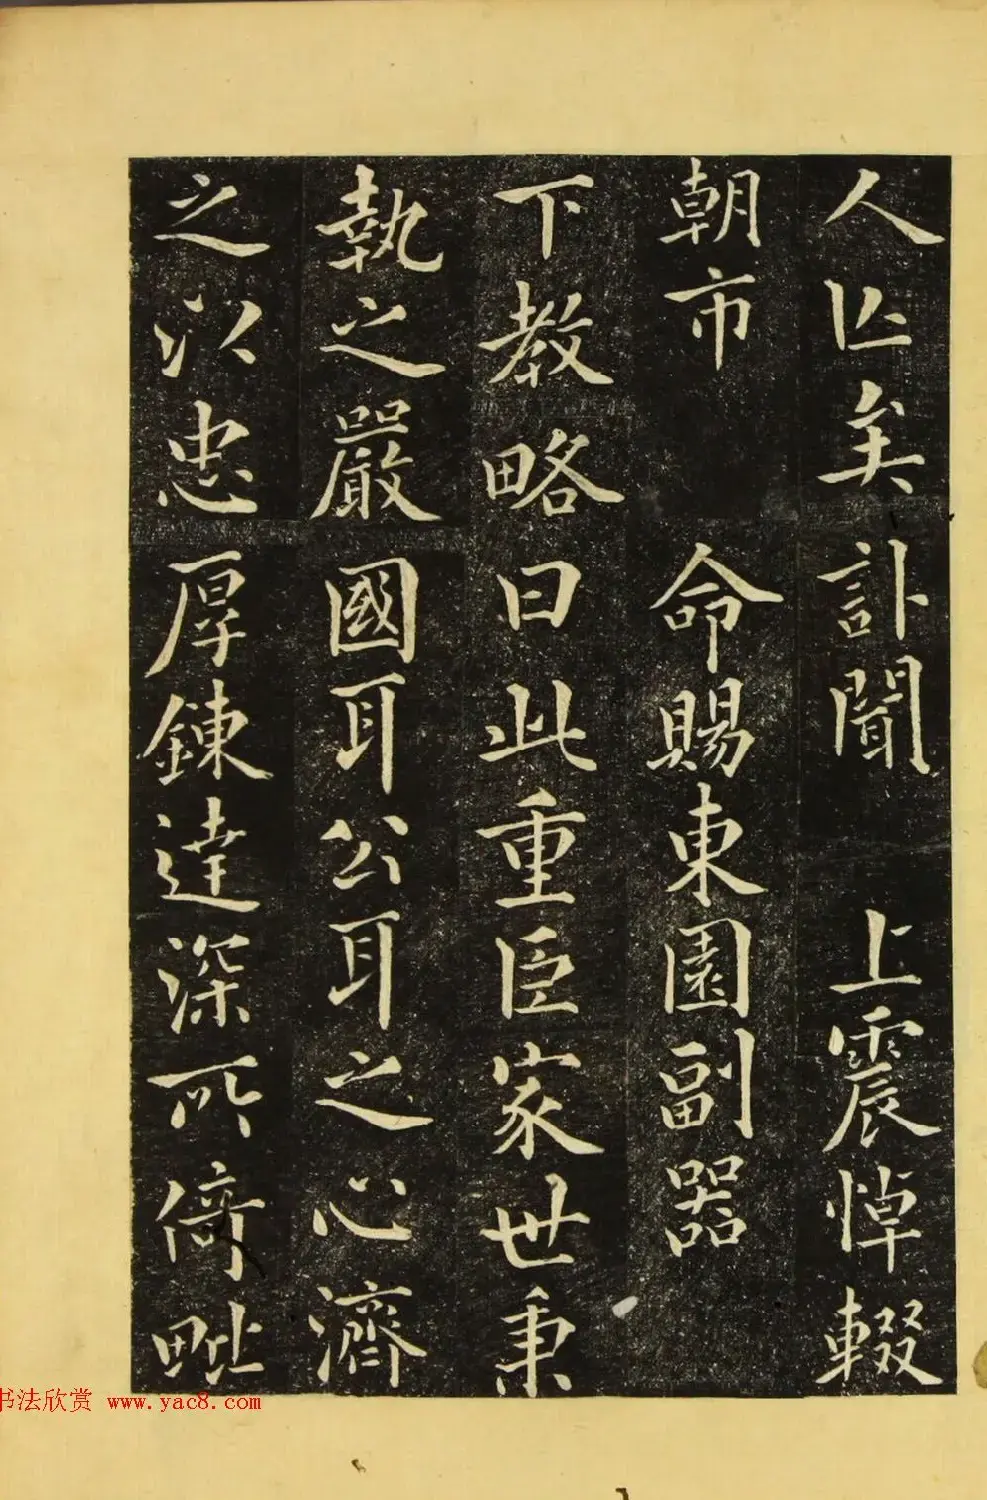 人亾矣訃聞 上震悼輟
朝市 命賜東園副器
下教略曰此重臣家世秉
執之嚴國耳公耳之心濟
之以忠厚鍊達深所倚毗
书法欣赏 www.yac8.com